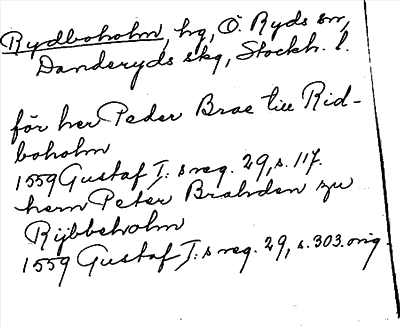 Rydboholm, hg, Ö. Ryds sn,
Danderyds skg, Stockh. l.
för her Peder Brae till Rid-
boholm
1559 Gustaf I:s reg. 29, s. 117.
herrn Peter Brahden zu
Rijbbeholm
1559 Gustaf I:s reg. 29, s. 303. orig.